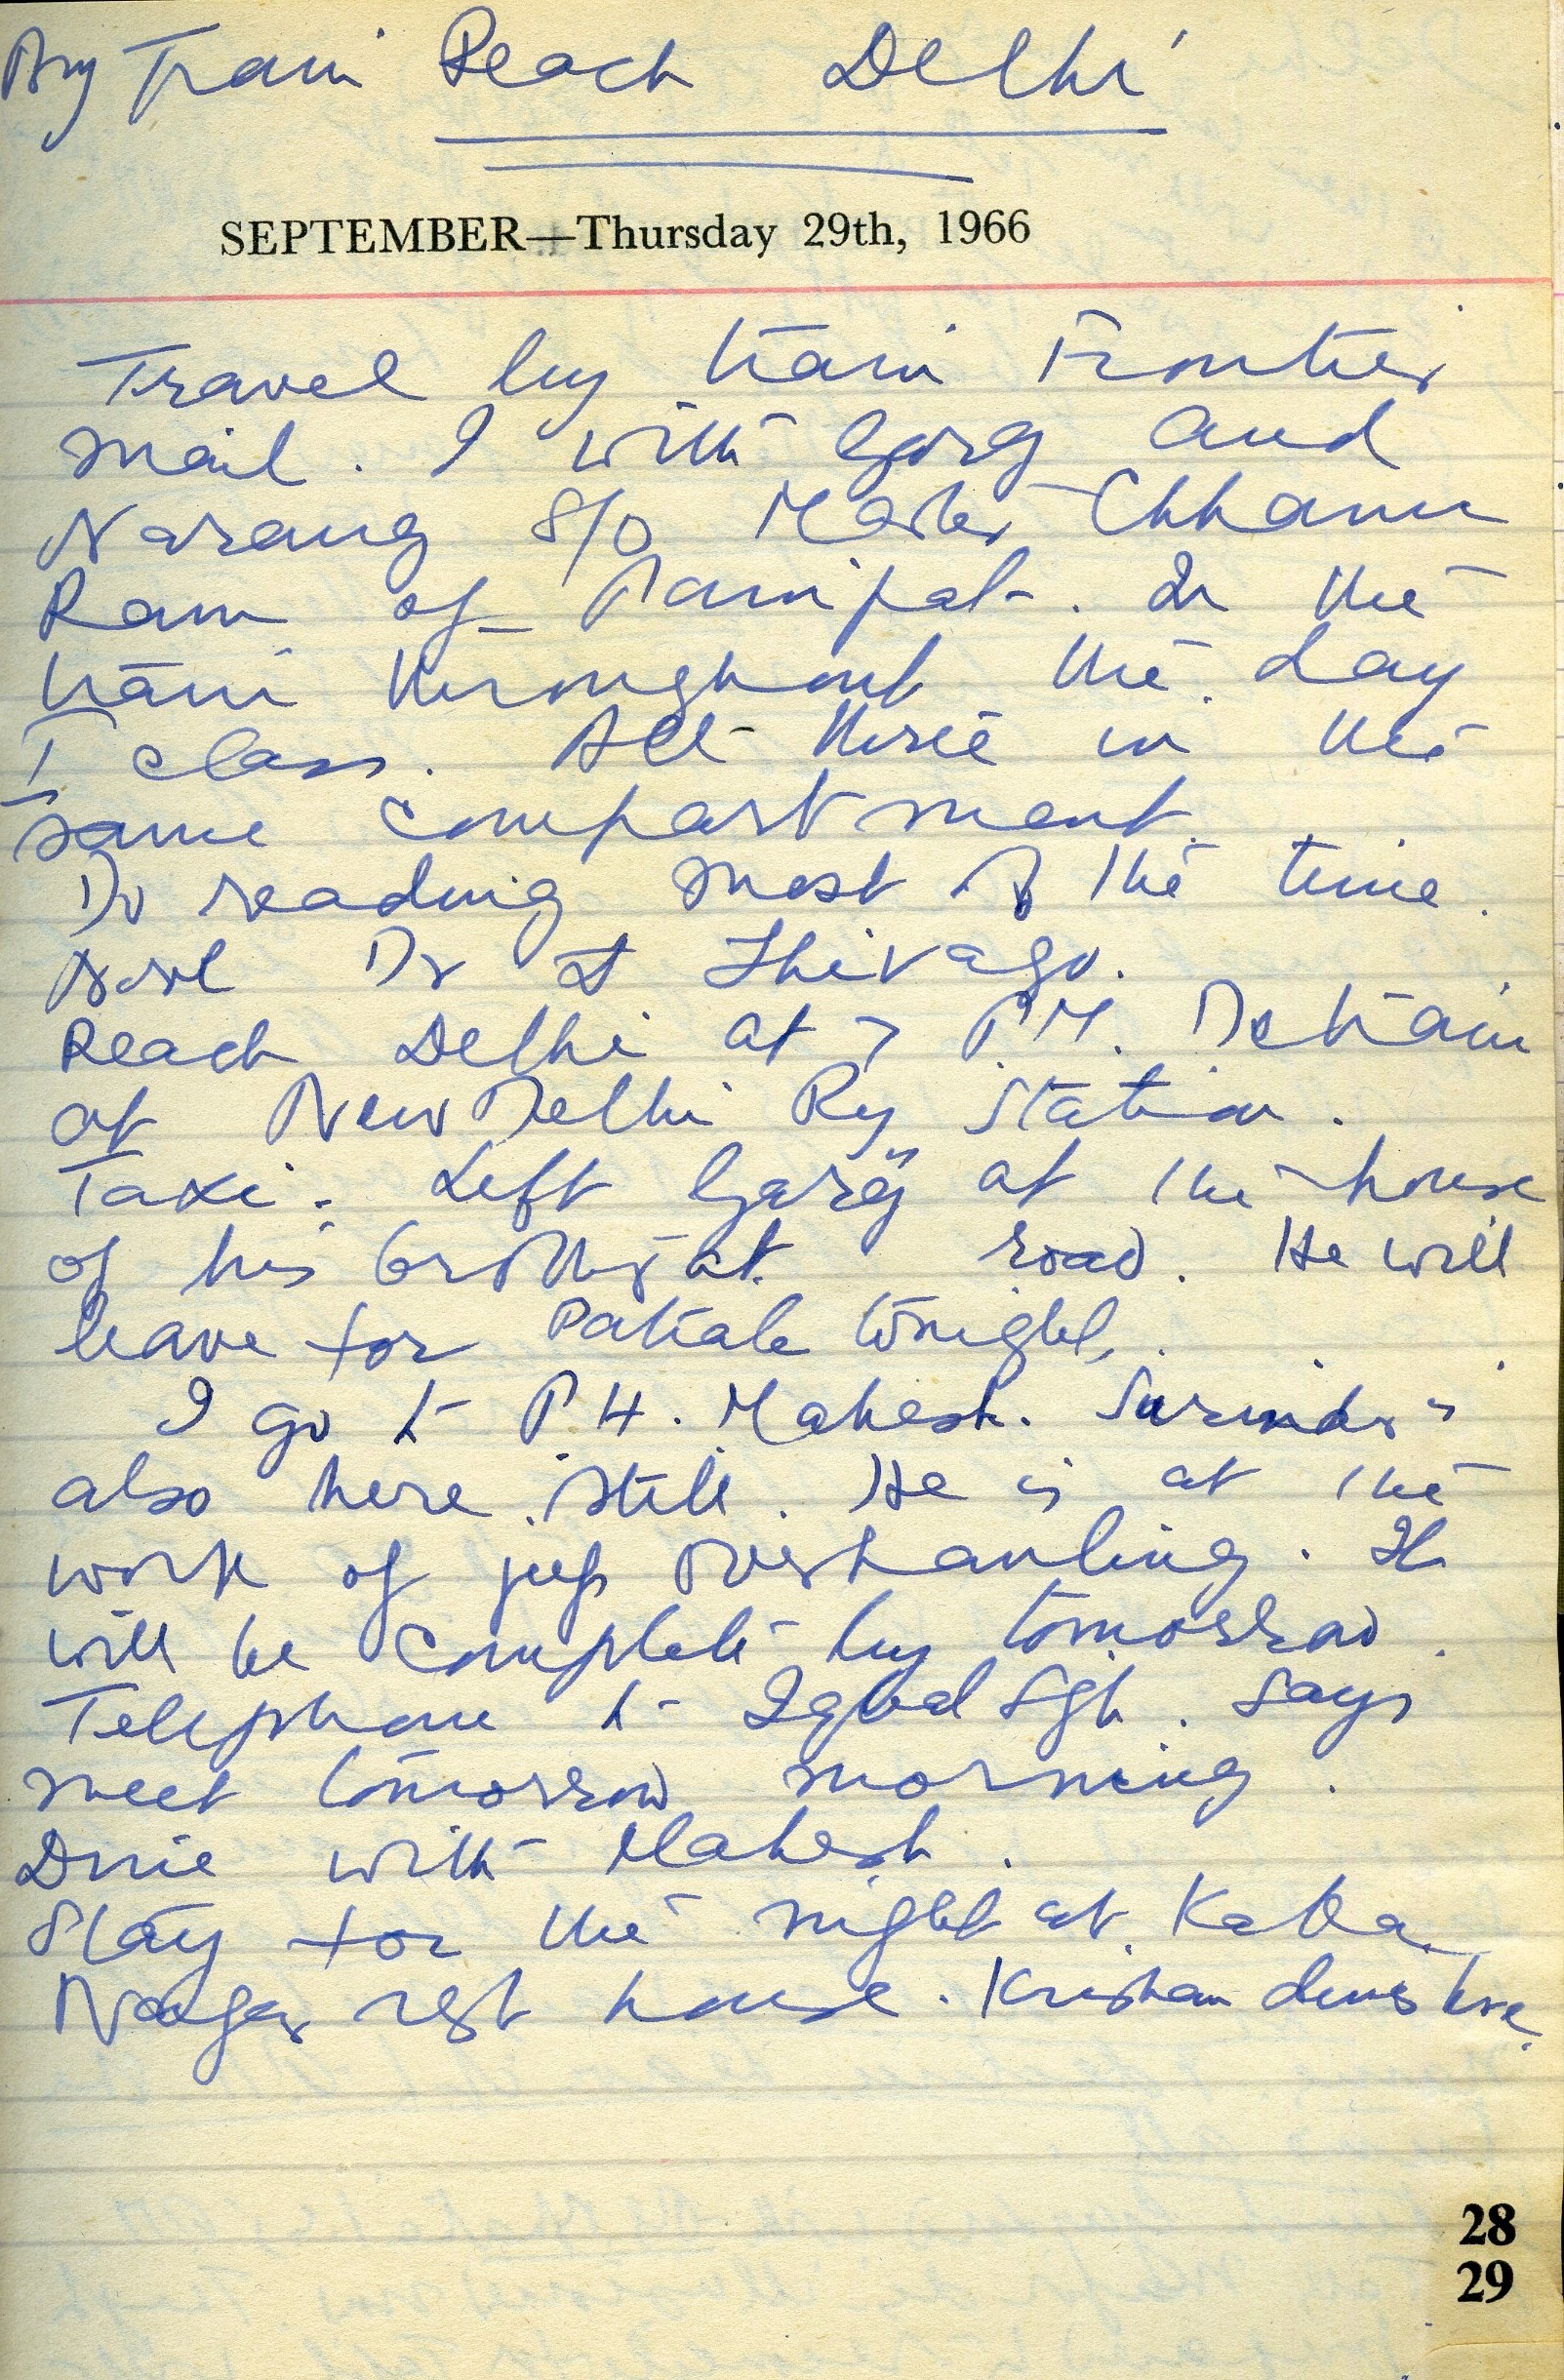 By Train Reach Delhi
SEPTEMBER—Thursday 29th, 1966
Travel by train Frontier
Mail. I with Garg and
Narang S/O Master Chhanu
Ram of Panipat. In the
train throughout the day
I class. All three in the
same compartment.
Do reading most of the time.
Dr Zhivago.
Reach Delhi at 7 P.M. Detrain
at New Delhi Ry Station.
Taxi. Left Garg at the house
of his brother at road. He will
leave for Patiala tonight.
I go to P.H. Mahesh. Surinder is
also here still. He is at the
work of jeep overhauling. It
will be complete by tomorrow.
Telephone to Iqbal Sgh. Says
meet tomorrow morning.
Dine with Mahesh.
Stay for the night at Kaka
Nagar rest house. Krishan here.
28
29